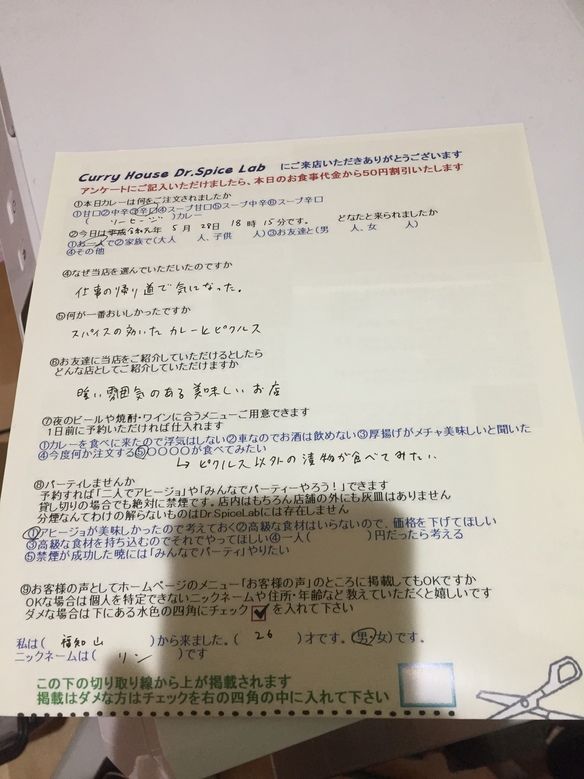 Curry House Dr.Spice Lab にご来店いただきありがとうございます
アンケートにご記入いただけましたら、本日のお食事代金から50円割引いたします
①本日カレーは何をご注文されましたか
①甘口②中辛③辛口④スープ甘口⑤スープ中辛⑥スープ辛口
( ソーセージ )カレー
②今日は平成令和元年 5 月 29日 18 時 15分です。 どなたと来られましたか
①お一人で②家族で(大人 人、子供 人)③お友達と(男 人、女 人)
④その他
④なぜ当店を選んでいただいたのですか
仕事の帰り道で気になった。
⑤何が一番おいしかったですか
スパイスの効いたカレーとピクルス
⑥お友達に当店をご紹介していただけるとしたら
どんな店としてご紹介していただけますか
雰囲気のある美味しいお店
⑦夜のビールや焼酎・ワインに合うメニューご用意できます
1日前に予約いただければ仕入れます
①カレーを食べに来たので浮気はしない②車なのでお酒は飲めない③厚揚げがメチャ美味しいと聞いた
④今度何か注文する⑤○○○○が食べてみたい
↳ピクルス以外の漬物が食べてみたい
⑧パーティしませんか
予約すれば「二人でアヒージョ」や「みんなでパーティーやろう!」できます
貸し切りの場合でも絶対に禁煙です。店内はもちろん店舗の外にも灰皿はありません
分煙なんてわけの解らないものはDr.SpiceLabには存在しません
①アヒージョが美味しかったので考えておく②高級な食材はいらないので、価格を下げてほしい
③高級な食材を持ち込むのでそれでやってほしい④一人( )円だったら考える
⑤禁煙が成功した暁には「みんなでパーティ」やりたい
⑨お客様の声としてホームページのメニュー「お客様の声」のところに掲載してもOKですか
OKな場合は個人を特定できないニックネームや住所・年齢など教えていただくと嬉しいです
ダメな場合は下にある水色の四角にチェック☑を入れて下さい
私は( 福知山 )から来ました。( 26 )才です。(男・女)です。
ニックネームは( リン )です
この下の切り取り線から上が掲載されます
掲載はダメな方はチェックを右の四角の中に入れて下さい